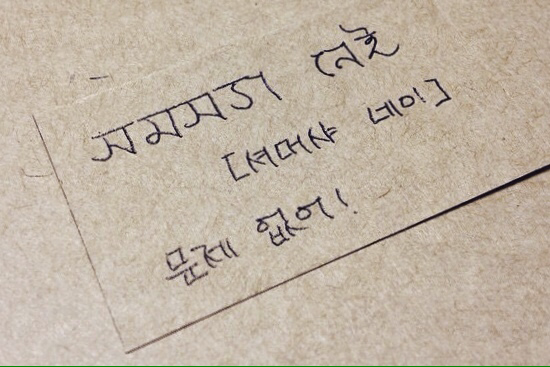 সমস্যা নেই
[셔머샤 네이]
문제 없어!